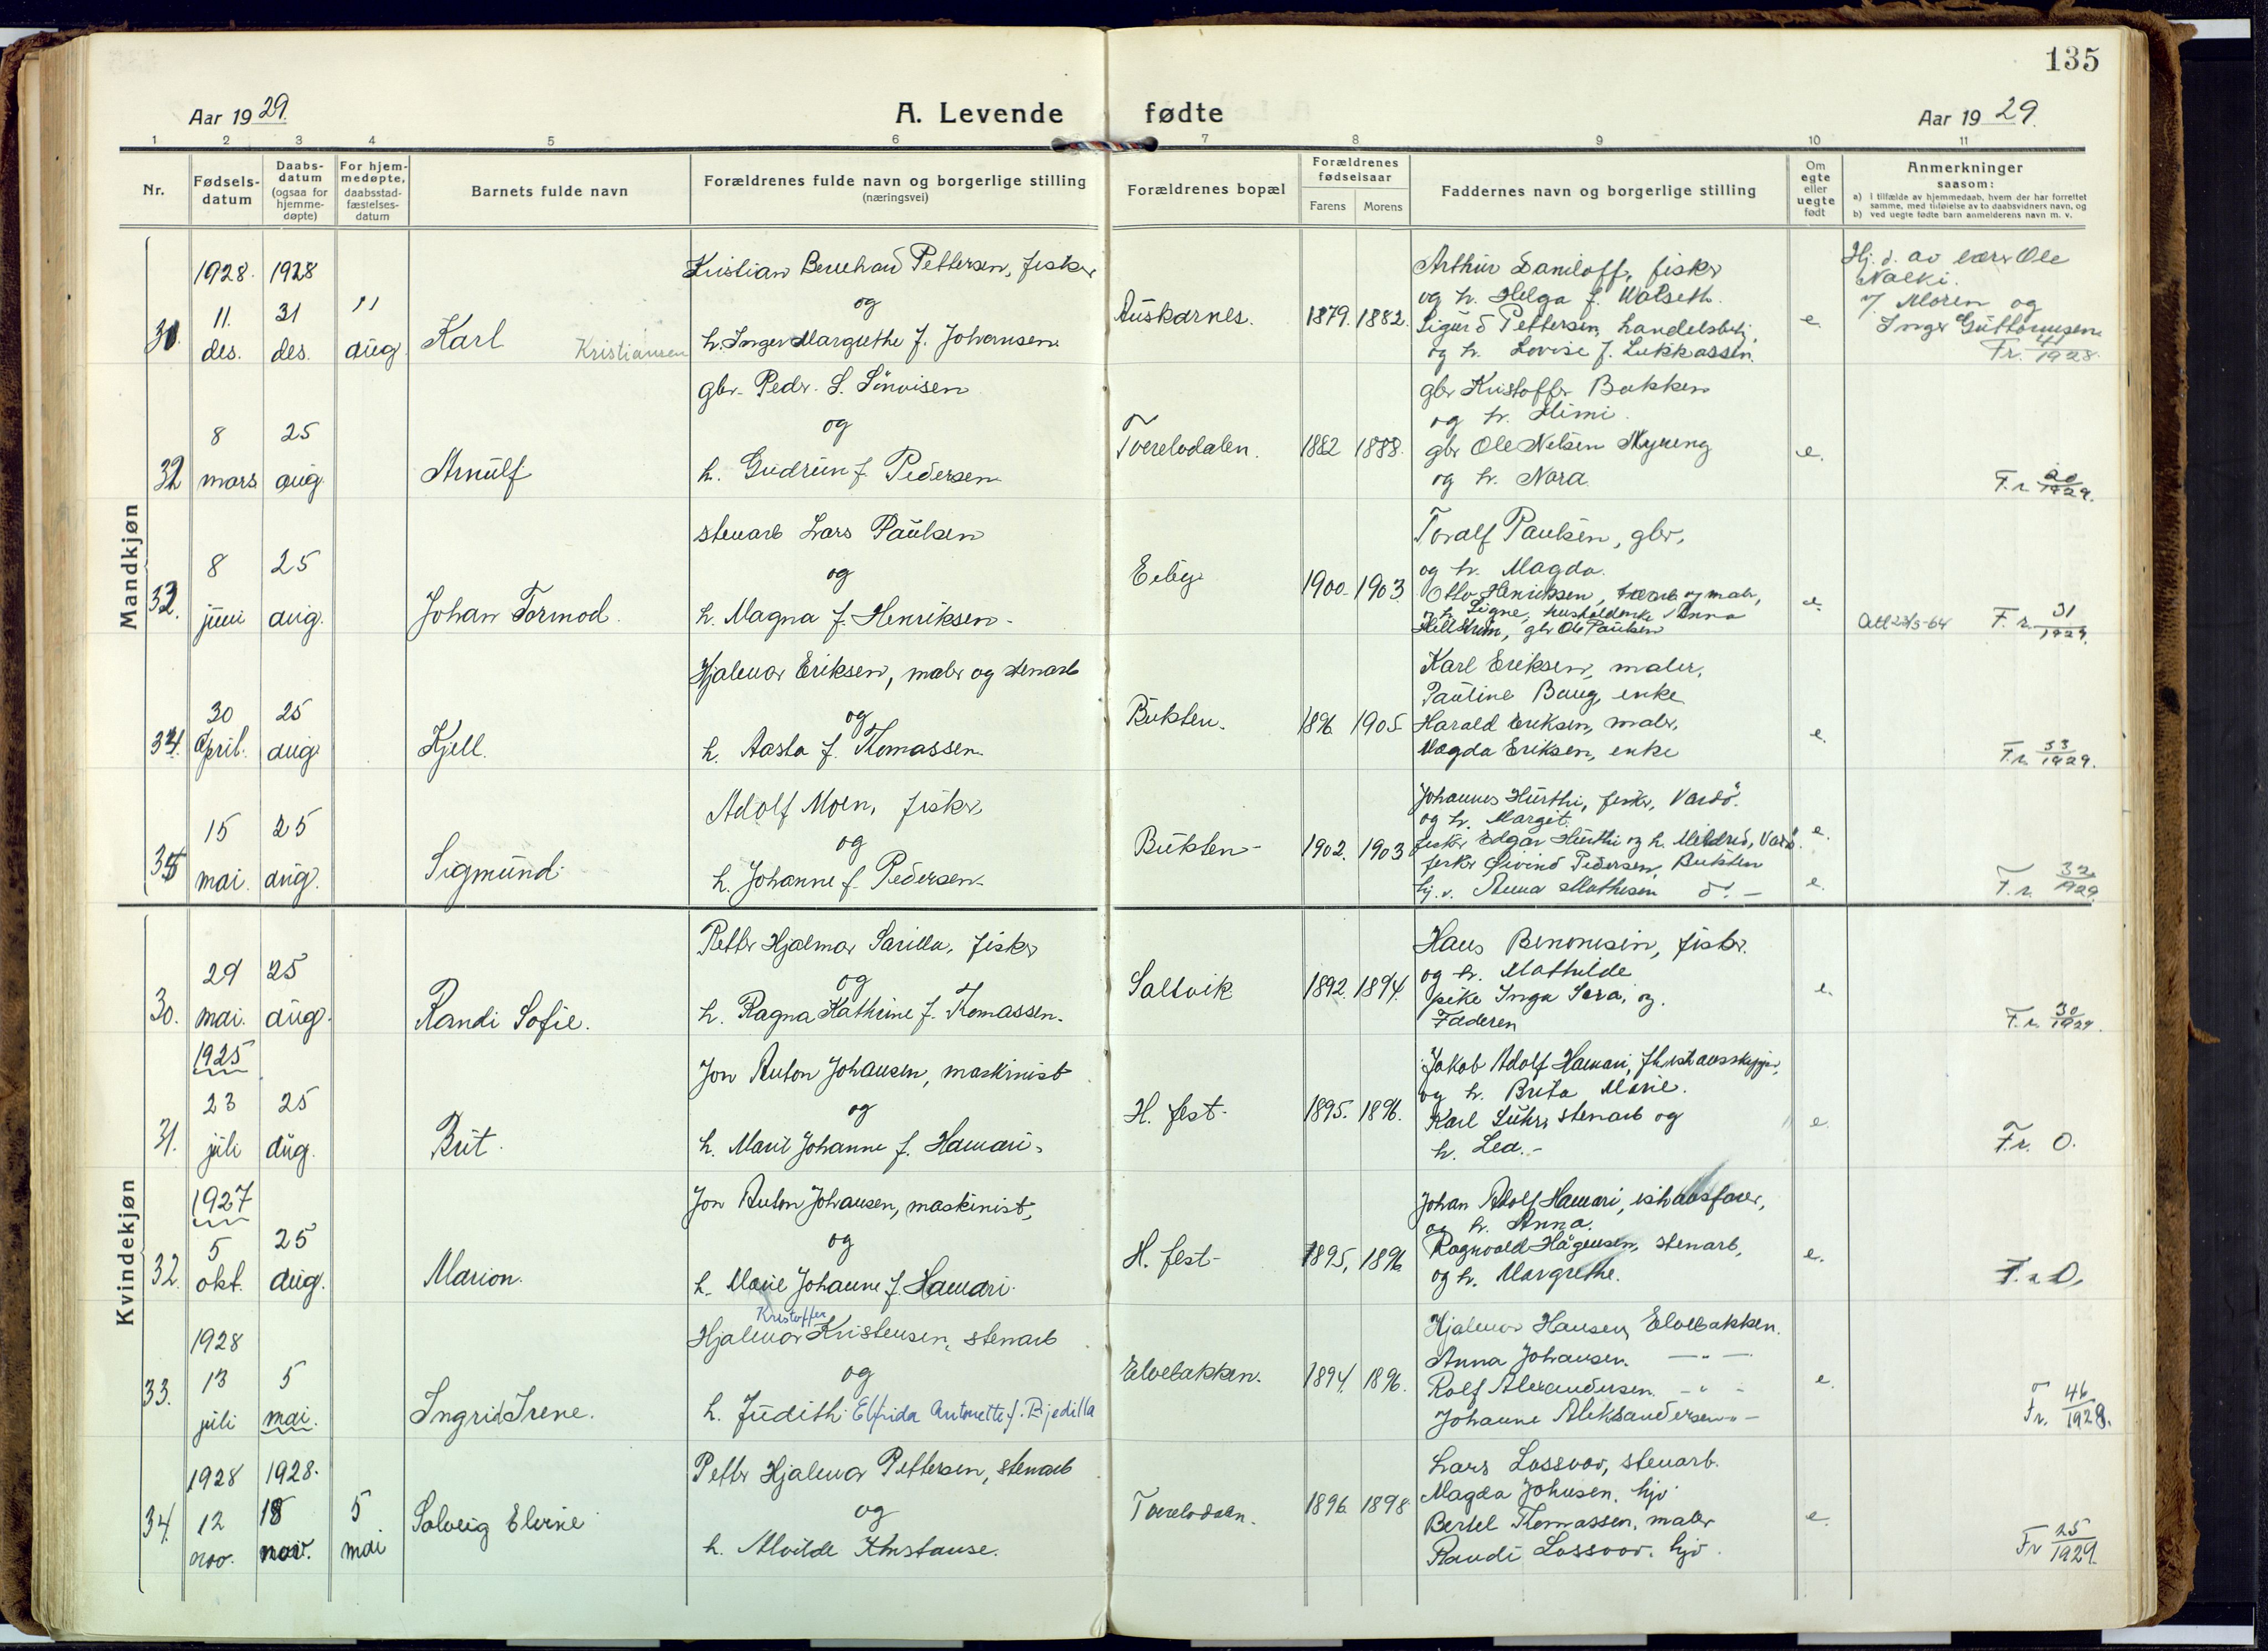 135
Aar 1929.
A. Levende fødte
Aar 1929.
1 2 3 4 5 6 7 8 9 10 11
Nr.
Fødselsdatum
Daabsdatum (ogsaa for hjemmedøpte)
For hjemmedøpte, daabsstadfæstelsesdatum
Barnets fulde navn
Forældrenes fulde navn og borgerlige stilling (næringsvei)
Forældrenes bopæl
Forældrenes fødselsaar
Farens Morens
Faddernes navn og borgerlige stilling
Om egte eller uegte født
Anmerkninger saasom:
a) i tilfælde av hjemmedaab, hvem der har forrettet samme, med tilføielse av to daabsvidners navn, og
b) ved uegte fødte barn anmelderens navn m. v.
Mandkjøn
1928. 11. des.
1928 31 des.
11 aug.
Karl Kristiansen
Kristian Bernhard Pettersen, fisker
og
h. Inger Margrethe f. Johansen
Auskarnes.
1879. 1882.
Arthur Daniloff, fisker
og h. Helga f. Walseth.
Sigurd Pettersen, handelsbetj.
og h. Lovise f. Lukkassen.
e.
Hj. d. av lærer Ole
Nalki.
v/ Moren og
Inger Guttormsen
Fr. 41/1928.
32
8 mars
25 aug.
Arnulf
gbr. Peder S. Sönvisen
og
h. Gudrun f. Pedersen
Tverelvdalen.
1882 1888.
gbr Kristoffer Bakken
og h. Mimi.
gbr Ole Nelsen Nyeng
og h. Nora.
e.
F. r. 20/1929.
33.
8 juni
25 aug.
Johan Tormod.
stenarb Lars Paulsen
og
h. Magna f. Henriksen
Eiby
1900. 1903.
Toralf Paulsen, gbr,
og h. Magda.
Otto Henriksen, og maler,
og h. Signe, Anna
Hellstrøm, gbr Ole Paulsen
e.
Att 23/5-64
F. r. 31/1929.
34.
30 April.
25 aug.
Kjell.
Hjalmar Eriksen, maler og stenarb
og
h. Aasta f. Thomassen.
Bukten.
1896. 1905.
Karl Eriksen, maler,
Pauline Baug, enke
Harald Eriksen, maler,
Magda Eriksen, enke
e.
F. r. 33/1929.
35
15 mai.
25 aug.
Sigmund.
Adolf Moen, fisker
og
h. Johanne f. Pedersen
Bukten
1902. 1903
Johannes Hurthi, fisker, Vardö.
og h. Margit.
fisker Edgar Hurthi og h. Mildred, Vardö.
fisker Øivind Pedersen, Bukten
hj. v. Anna Mathisen do. —
e.
e.
F. r. 32/1929.
Kvindekjøn
30.
29 mai.
25 aug.
Randi Sofie.
Petter Hjalmar Sarilla, fisker
og
h. Ragna Kathrine f. Thomassen.
Saltvik
1892. 1894.
Hans Benonisen, fisker.
og h. Mathilde
pike Inga Sara, og
Faderen
e.
F. r. 30/1929.
31.
1925 23 juli
25 aug.
Brit.
Jon Anton Johansen, maskinist
og
h. Marie Johanne f. Hamari.
H. fest.
1895. 1896.
Jakob Adolf Hamari, Ishavsskipper,
og h. Brita Marie.
Karl Suhr, stenarb og
h. Lea.
e.
F. r. 0.
32.
1927 5 okt.
25 aug.
Marion.
Jon Anton Johansen, maskinist,
og
h. Marie Johanne f. Hamari.
H. fest
1895, 1896
Johan Adolf Hamari, ishavsfarer,
og h. Anna.
Ragnvald Hågensen, stenarb,
og h. Margrethe.
e.
F. r 0.
33.
1928 13 juli
5 mai.
Ingrid Irene.
Kristoffer
Hjalmar Kristensen, stenarb
og
h. Judith Elfrida Antonette f. Bjedilla
Elvebakken.
1894. 1896.
Hjalmar Hansen, Elvebakken.
Anna Johansen. — " —
Rolf Alexandersen. - " -
Johanne Aleksandersen - " -
e.
Fr. 46/1928.
34.
1928 12 nov.
1928. 18 nov.
5 mai
Solveig Elvine
Petter Hjalmar Pettersen, stenarb
og
h. Alvilde Konstanse.
Tverelvdalen.
1896. 1898.
Lars Lassvov, stenarb.
Magda Johnsen. hjv
Bertel Thomassen, maler
Randi Lassvov. hjv.
e.
Fr 25/1929.